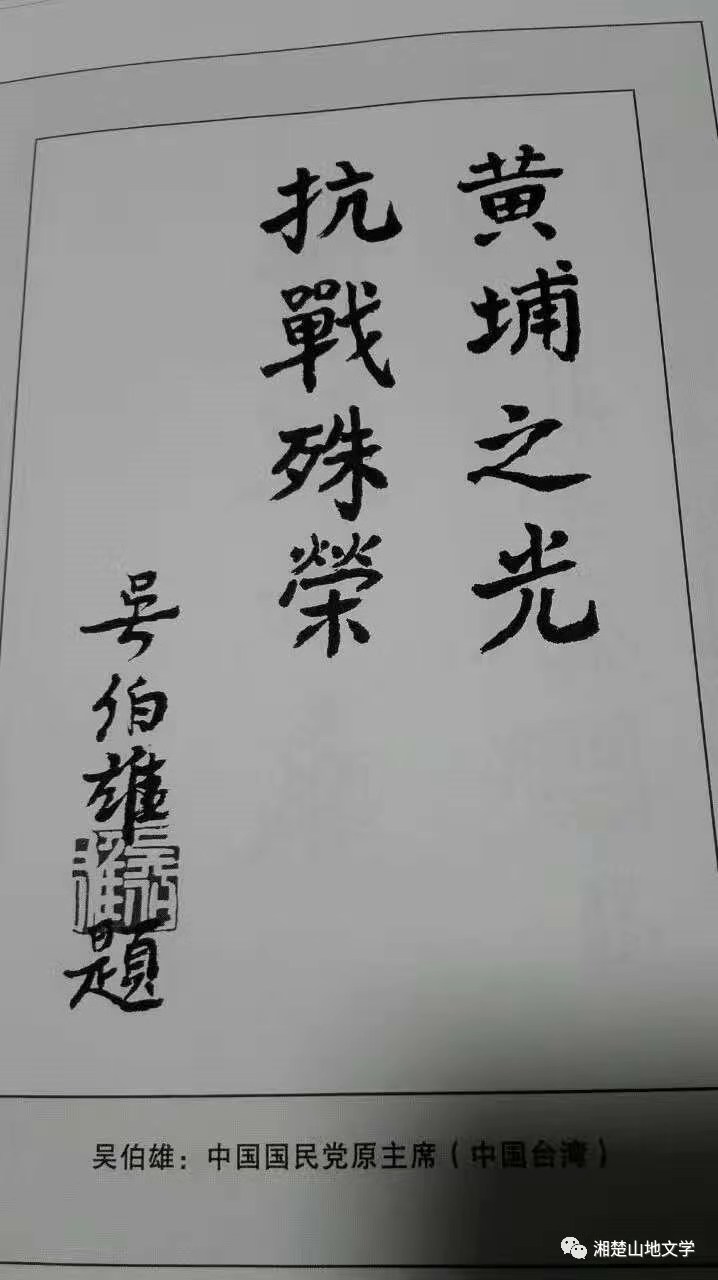 黄埔之光
抗戰殊榮
吳伯雄題
吴伯雄：中国国民党原主席（中国台湾）
湘楚山地文学